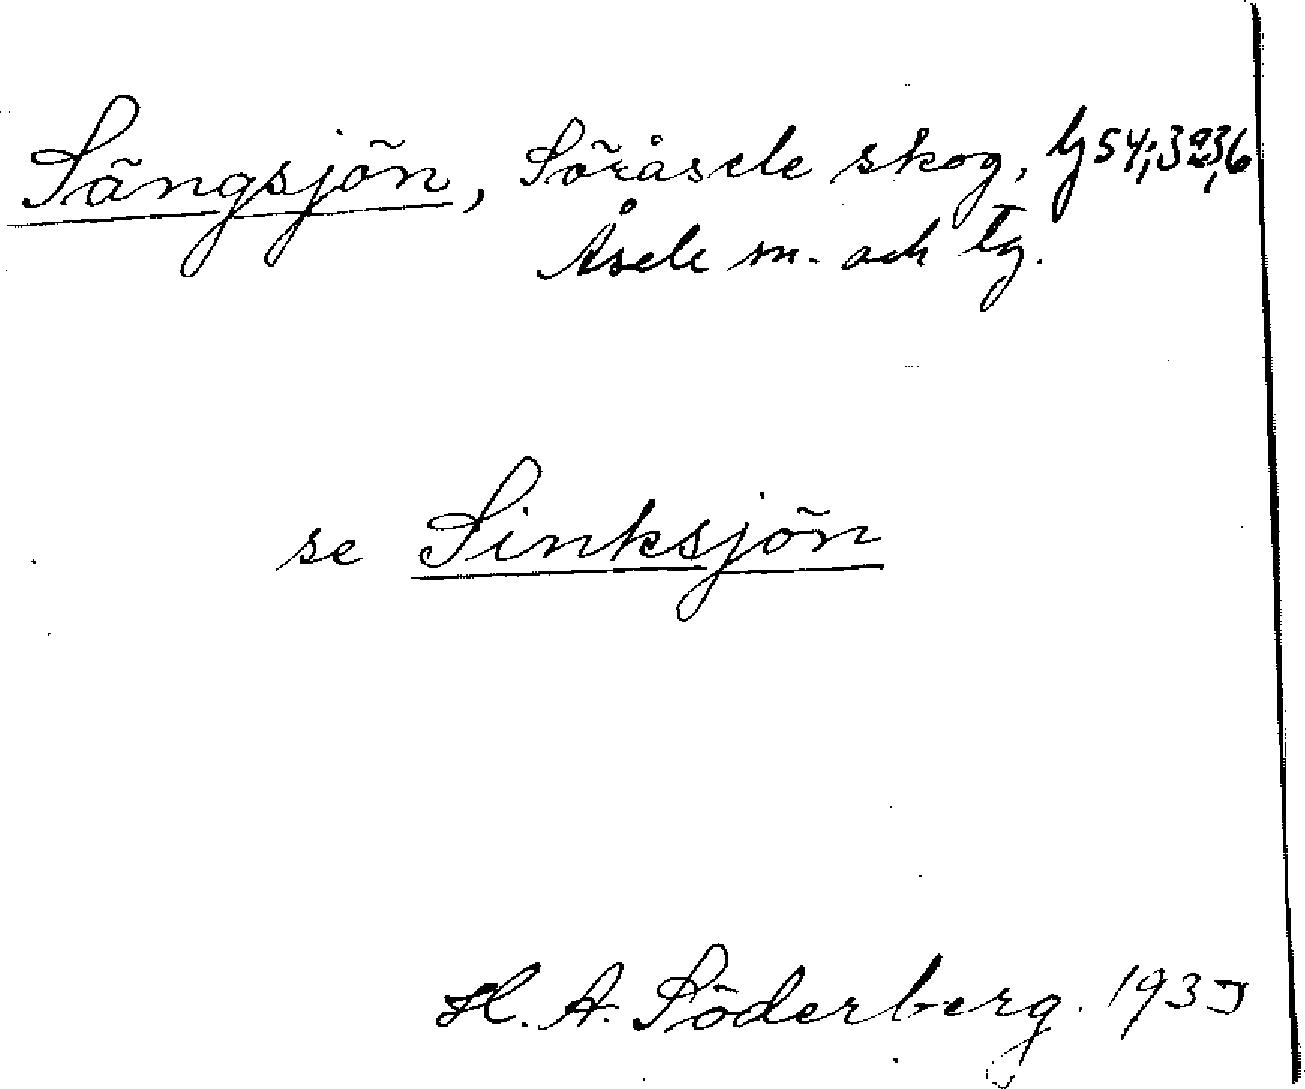 Sängsjön, Söråsele skog, lj 54;323,6
Åsele sn. och tg.
se Sinksjön
H. A. Söderberg. 1935